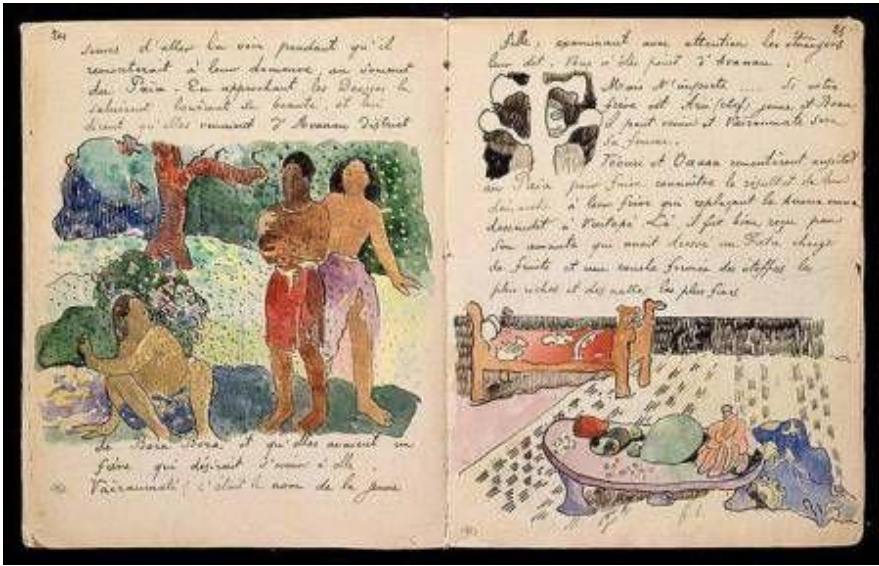 24
sœurs d'aller la voir pendant qu'il
remonterait à leur demeure, au sommet
du Paia. En approchant les Déesses la
saluèrent, louèrent sa beauté, et lui
dirent qu'elles venaient d'Avanau district
de Bora Bora et qu'elles avaient un
frère qui désirait s'unir à elle.
Vairaumati (c'était le nom de la jeune
25
fille, examinant avec attention les étrangers
leur dit. Vous n'êtes point d'Avanau.
Mais N'importe .... Si votre
frère est Arii (chef) jeune et Beau
il peut venir et Vairaumate sera
sa femme.
Téouri et Oaaoa remontèrent aussitôt
au Paia pour faire connaître le résultat de leur
démarche à leur frère qui replaçant le
descendit à Vaitapé. Là, il fut bien reçu par
son amante qui avait dressé un Fata chargé
de fruits et une couche formée des étoffes les
plus riches et des nattes les plus fines